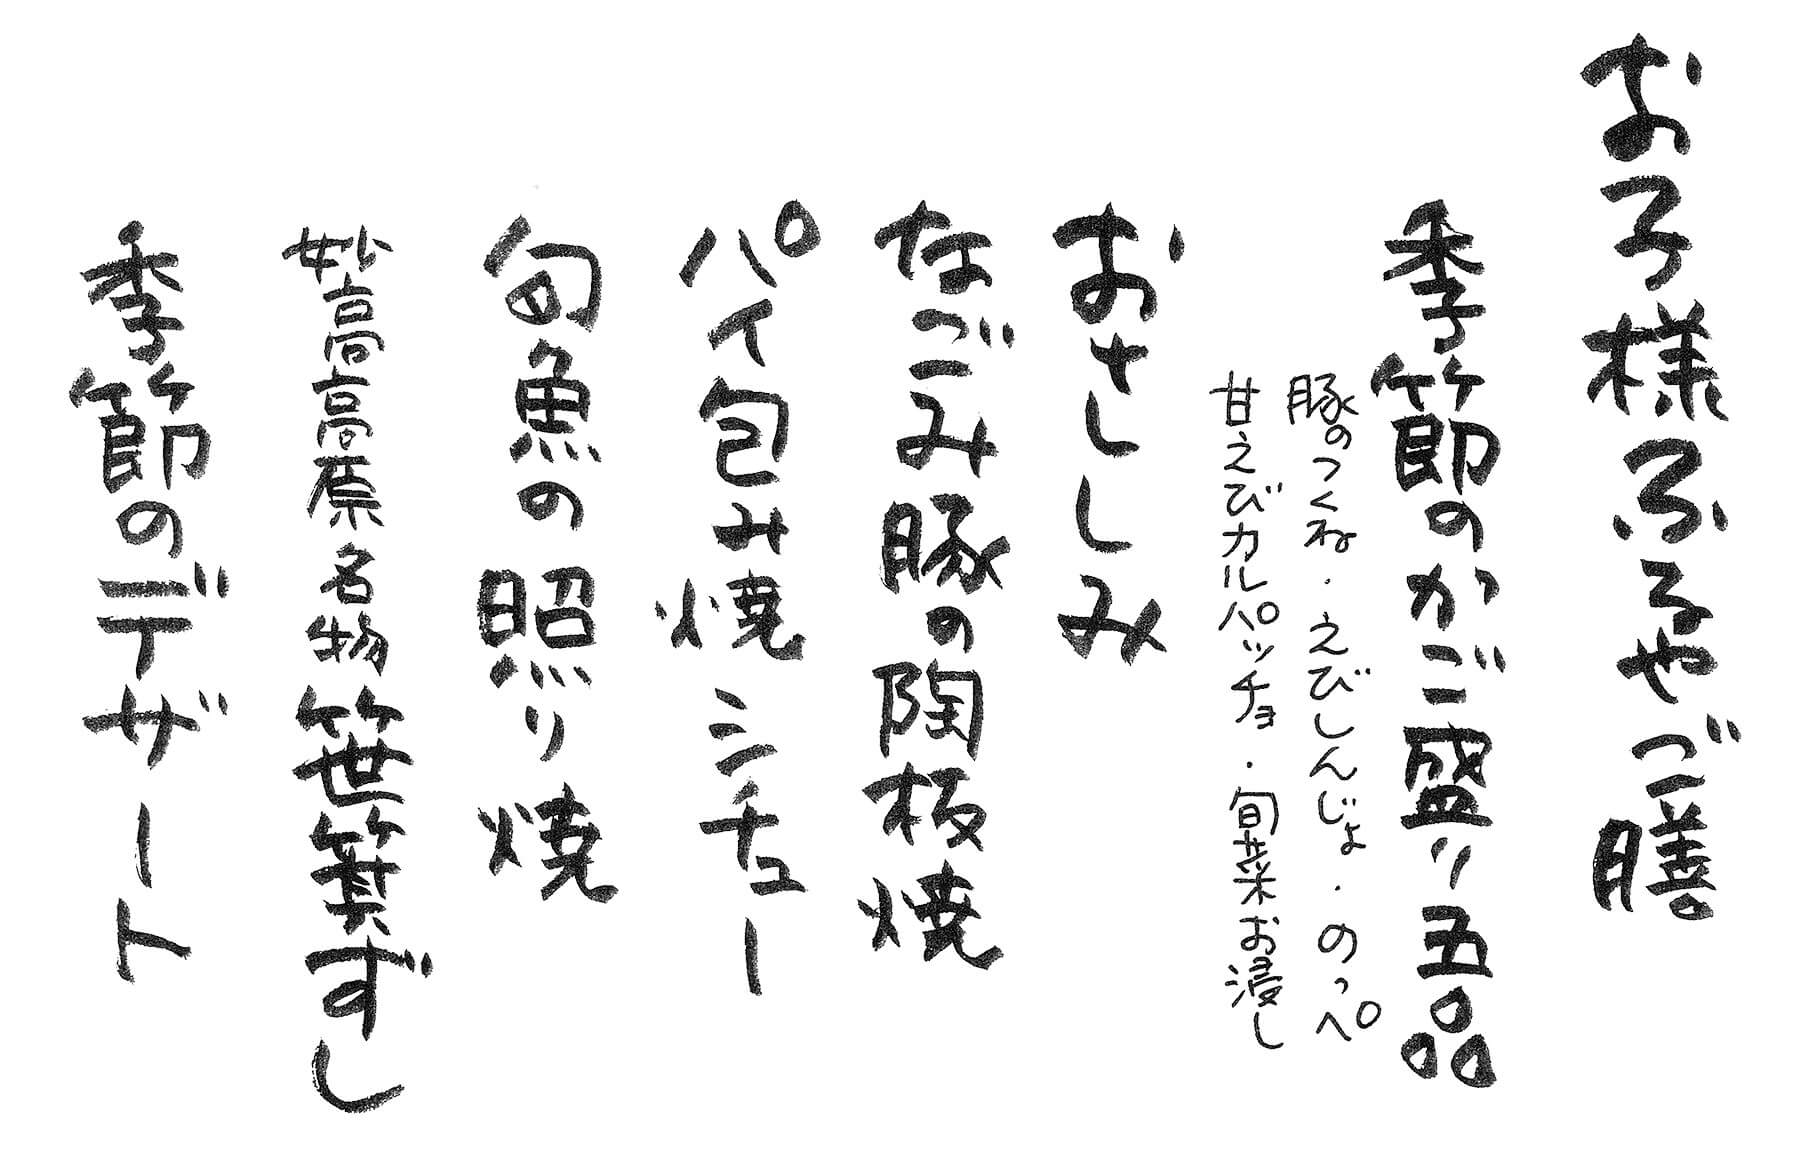 お子様ふるやご膳
季節のかご盛り五品
豚のつくね・えびしんじょ・のっぺ
甘えびカルパッチョ・旬菜お浸し
おさしみ
なごみ豚の陶板焼
パイ包み焼シチュー
旬魚の照り焼
妙高高原名物笹箕ずし
季節のデザート